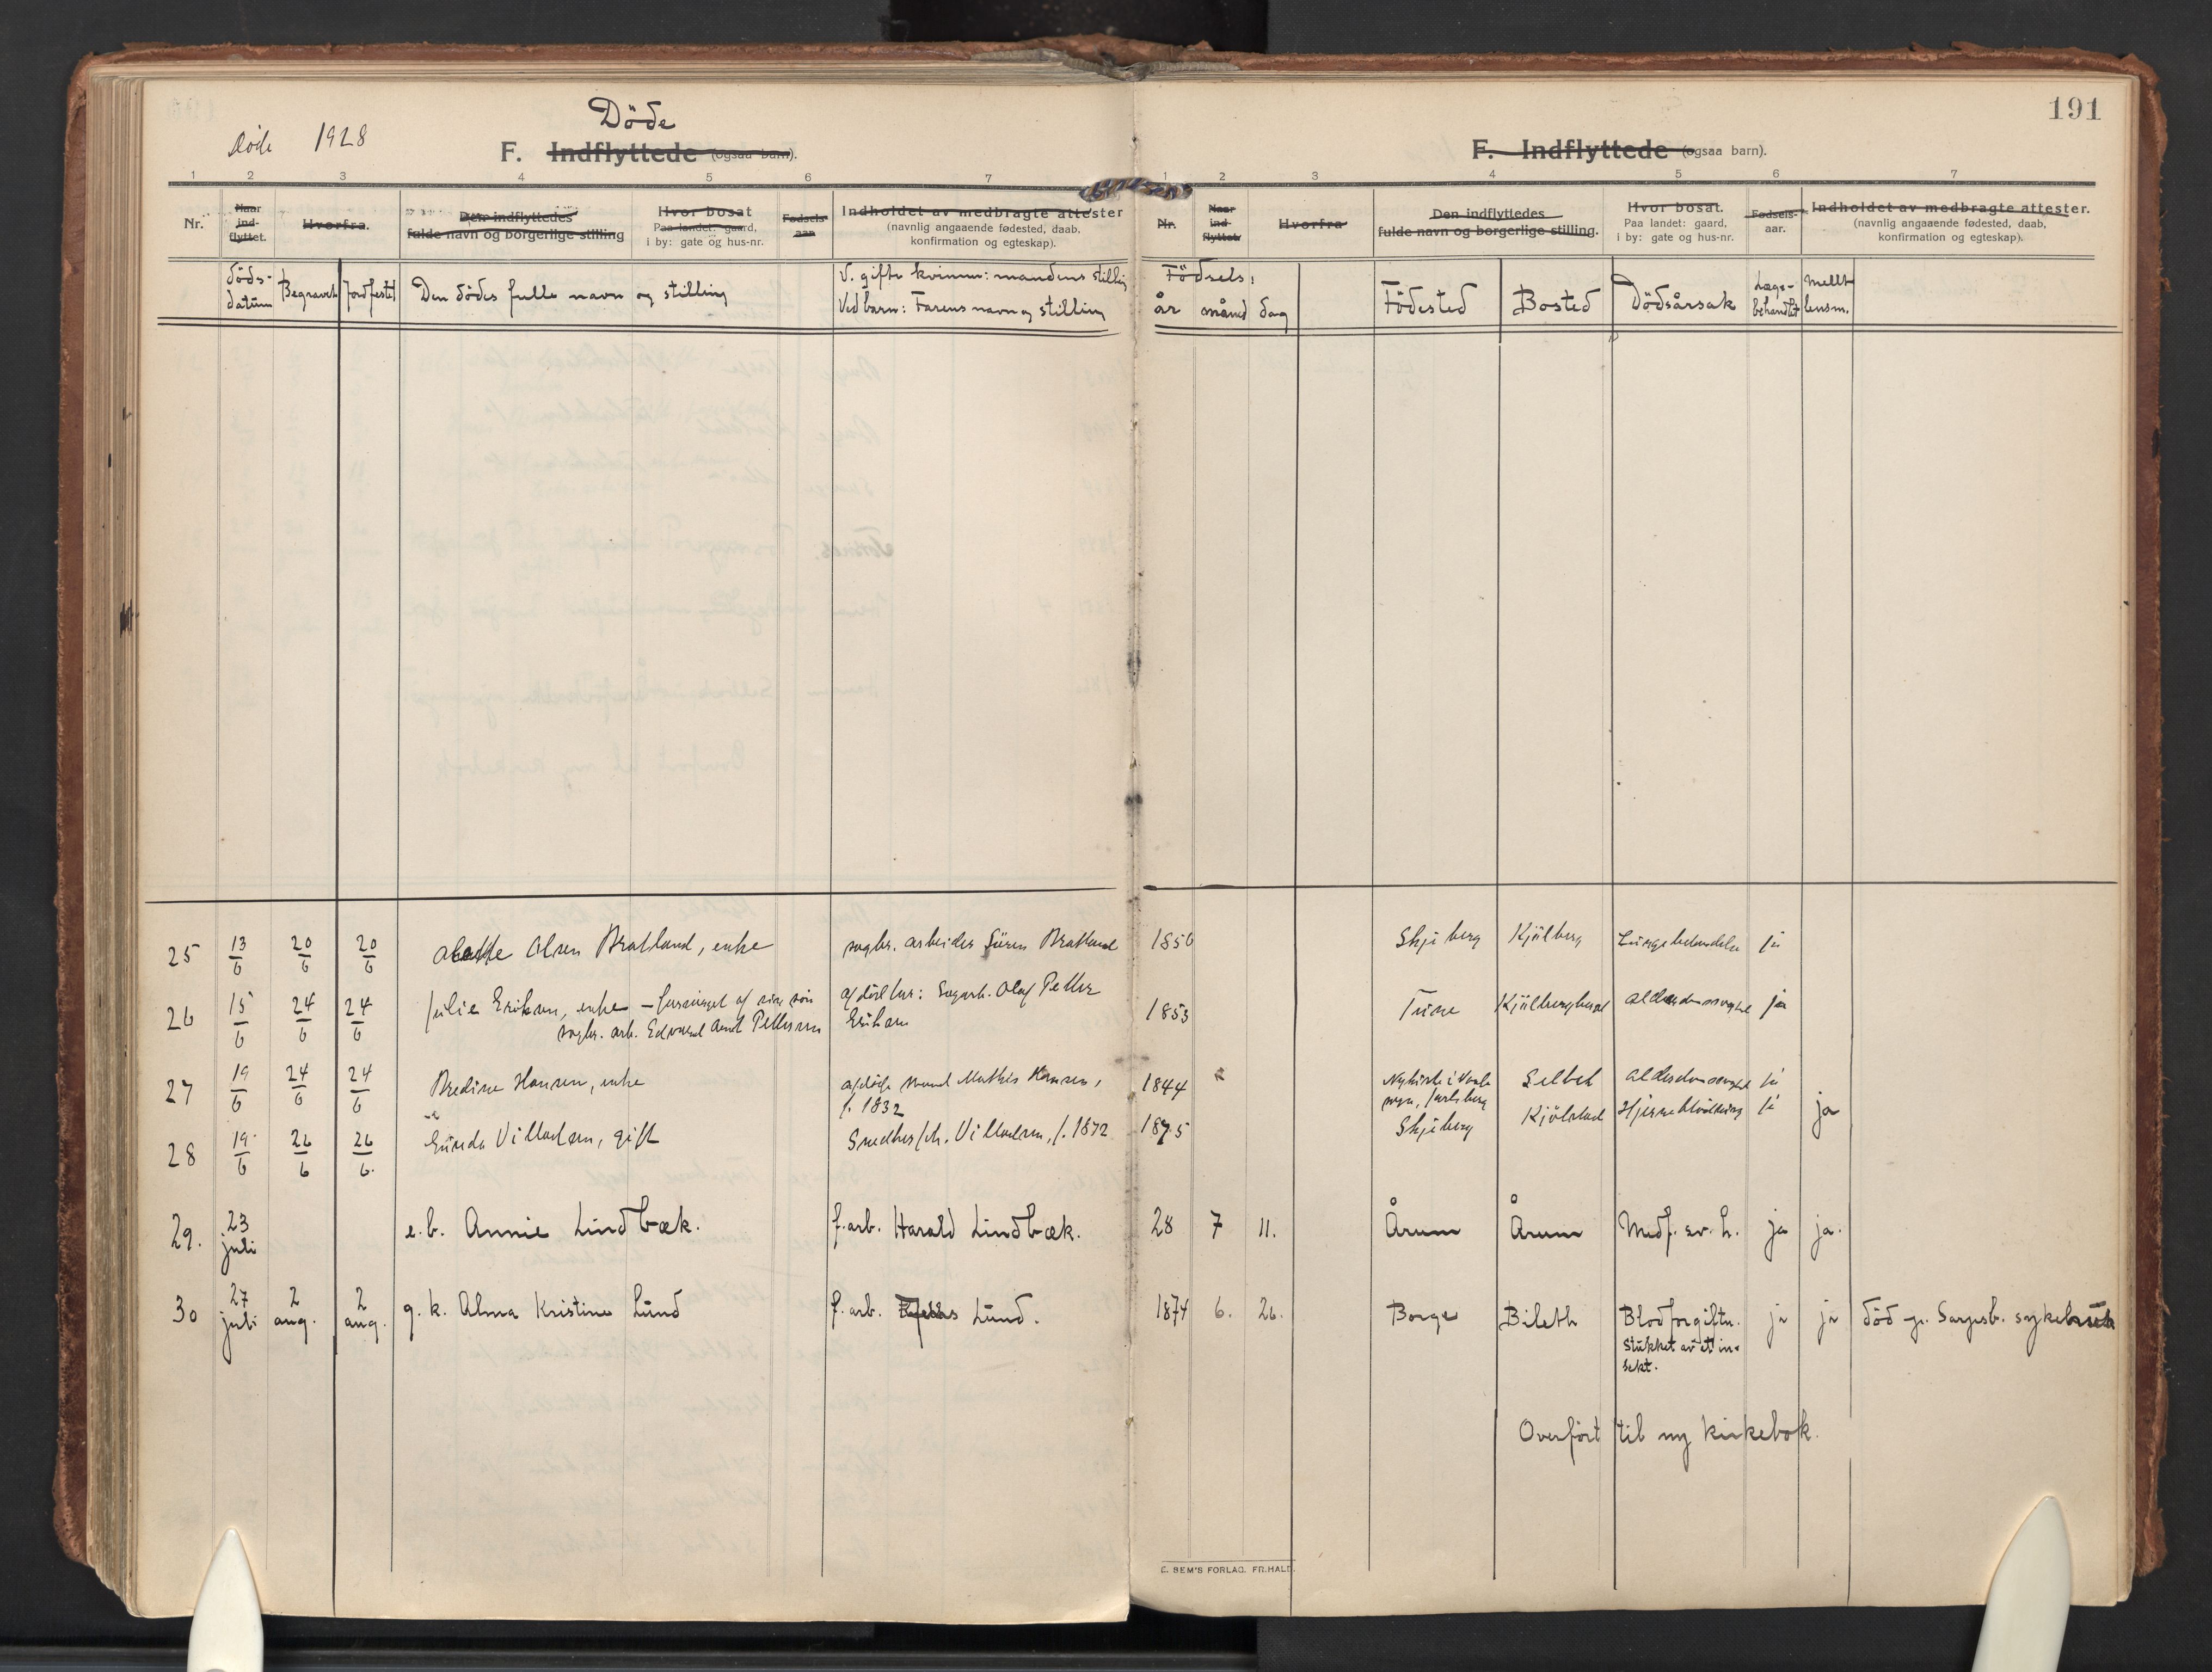 191
Döde
Döde 1928
F. Indflyttede (ogsaa barn).
F. Indflyttede (ogsaa barn).
1 2 3 4 5 6 7
1 2 3 4 5 6 7
Nr.
Naar ind-flyttet.
Hvorfra.
Den indflyttedes
fulde navn og borgerlige stilling
Hvor bosat
Paa landet: gaard,
i by: gate og hus-nr.
Fødsels-
aar.
Indholdet av medbragte attester
(navnlig angaaende fødested, daab,
konfirmation og egteskap).
Nr.
Naar ind-flyttet.
Hvorfra
Den indflyttedes
fulde navn og borgerlige stilling.
Hvor bosat.
Paa landet: gaard,
i by: gate og hus-nr.
Fødsels-
aar.
Indholdet av medbragte attester.
(navnlig angaaende fødested, daab,
konfirmation og egteskap).
döds-
datum
Begravet
Jordfestet
Den dödes fulle navn og stilling
V. gifte kvinner: mandens stilling
Ved barn: Farens navn og stilling
Födsels:
år måned dag
Födested
Bosted
Dödsårsak
Læge-
behandlet
Meldt
lensm.
25 13/6 20/6 20/6 Olsen Bratland, enke arbeider Sören Bratland 1850 Skjeberg Kjölberg ja
26 15/6 24/6 24/6 Julie Eriksen, enke – forsörget af sin sön
arb. Edvard Pettersen
Olaf Petter
Eriksen 1853 Tune ja
27 19/6 24/6 24/6 Bredine Hansen, enke mand Mathis Hansen,
f. 1832 1844 Selbek ja
28 19/6 26/6 26/6. Villadsen, gift Villadsen, f. 1872 1875 Skjeberg Kjölstad ja ja
29. 23 juli e.b. Annie Lindbæk. f.arb. Harald Lindbæk. 28 7 11. Årum Årum Medf. sv. h. ja ja.
30 27 juli 2 aug. 2 aug. g. k. Alma Kristine Lund f. arb. Lund. 1874 6. 26. Borge Bileth Blodforgiftn. ja ja död p. Sarpsb. sykehus
Stukket av et in-
sekt.
Overfört til ny kirkebok.
E. SEM'S FORLAG. FR.HALD.